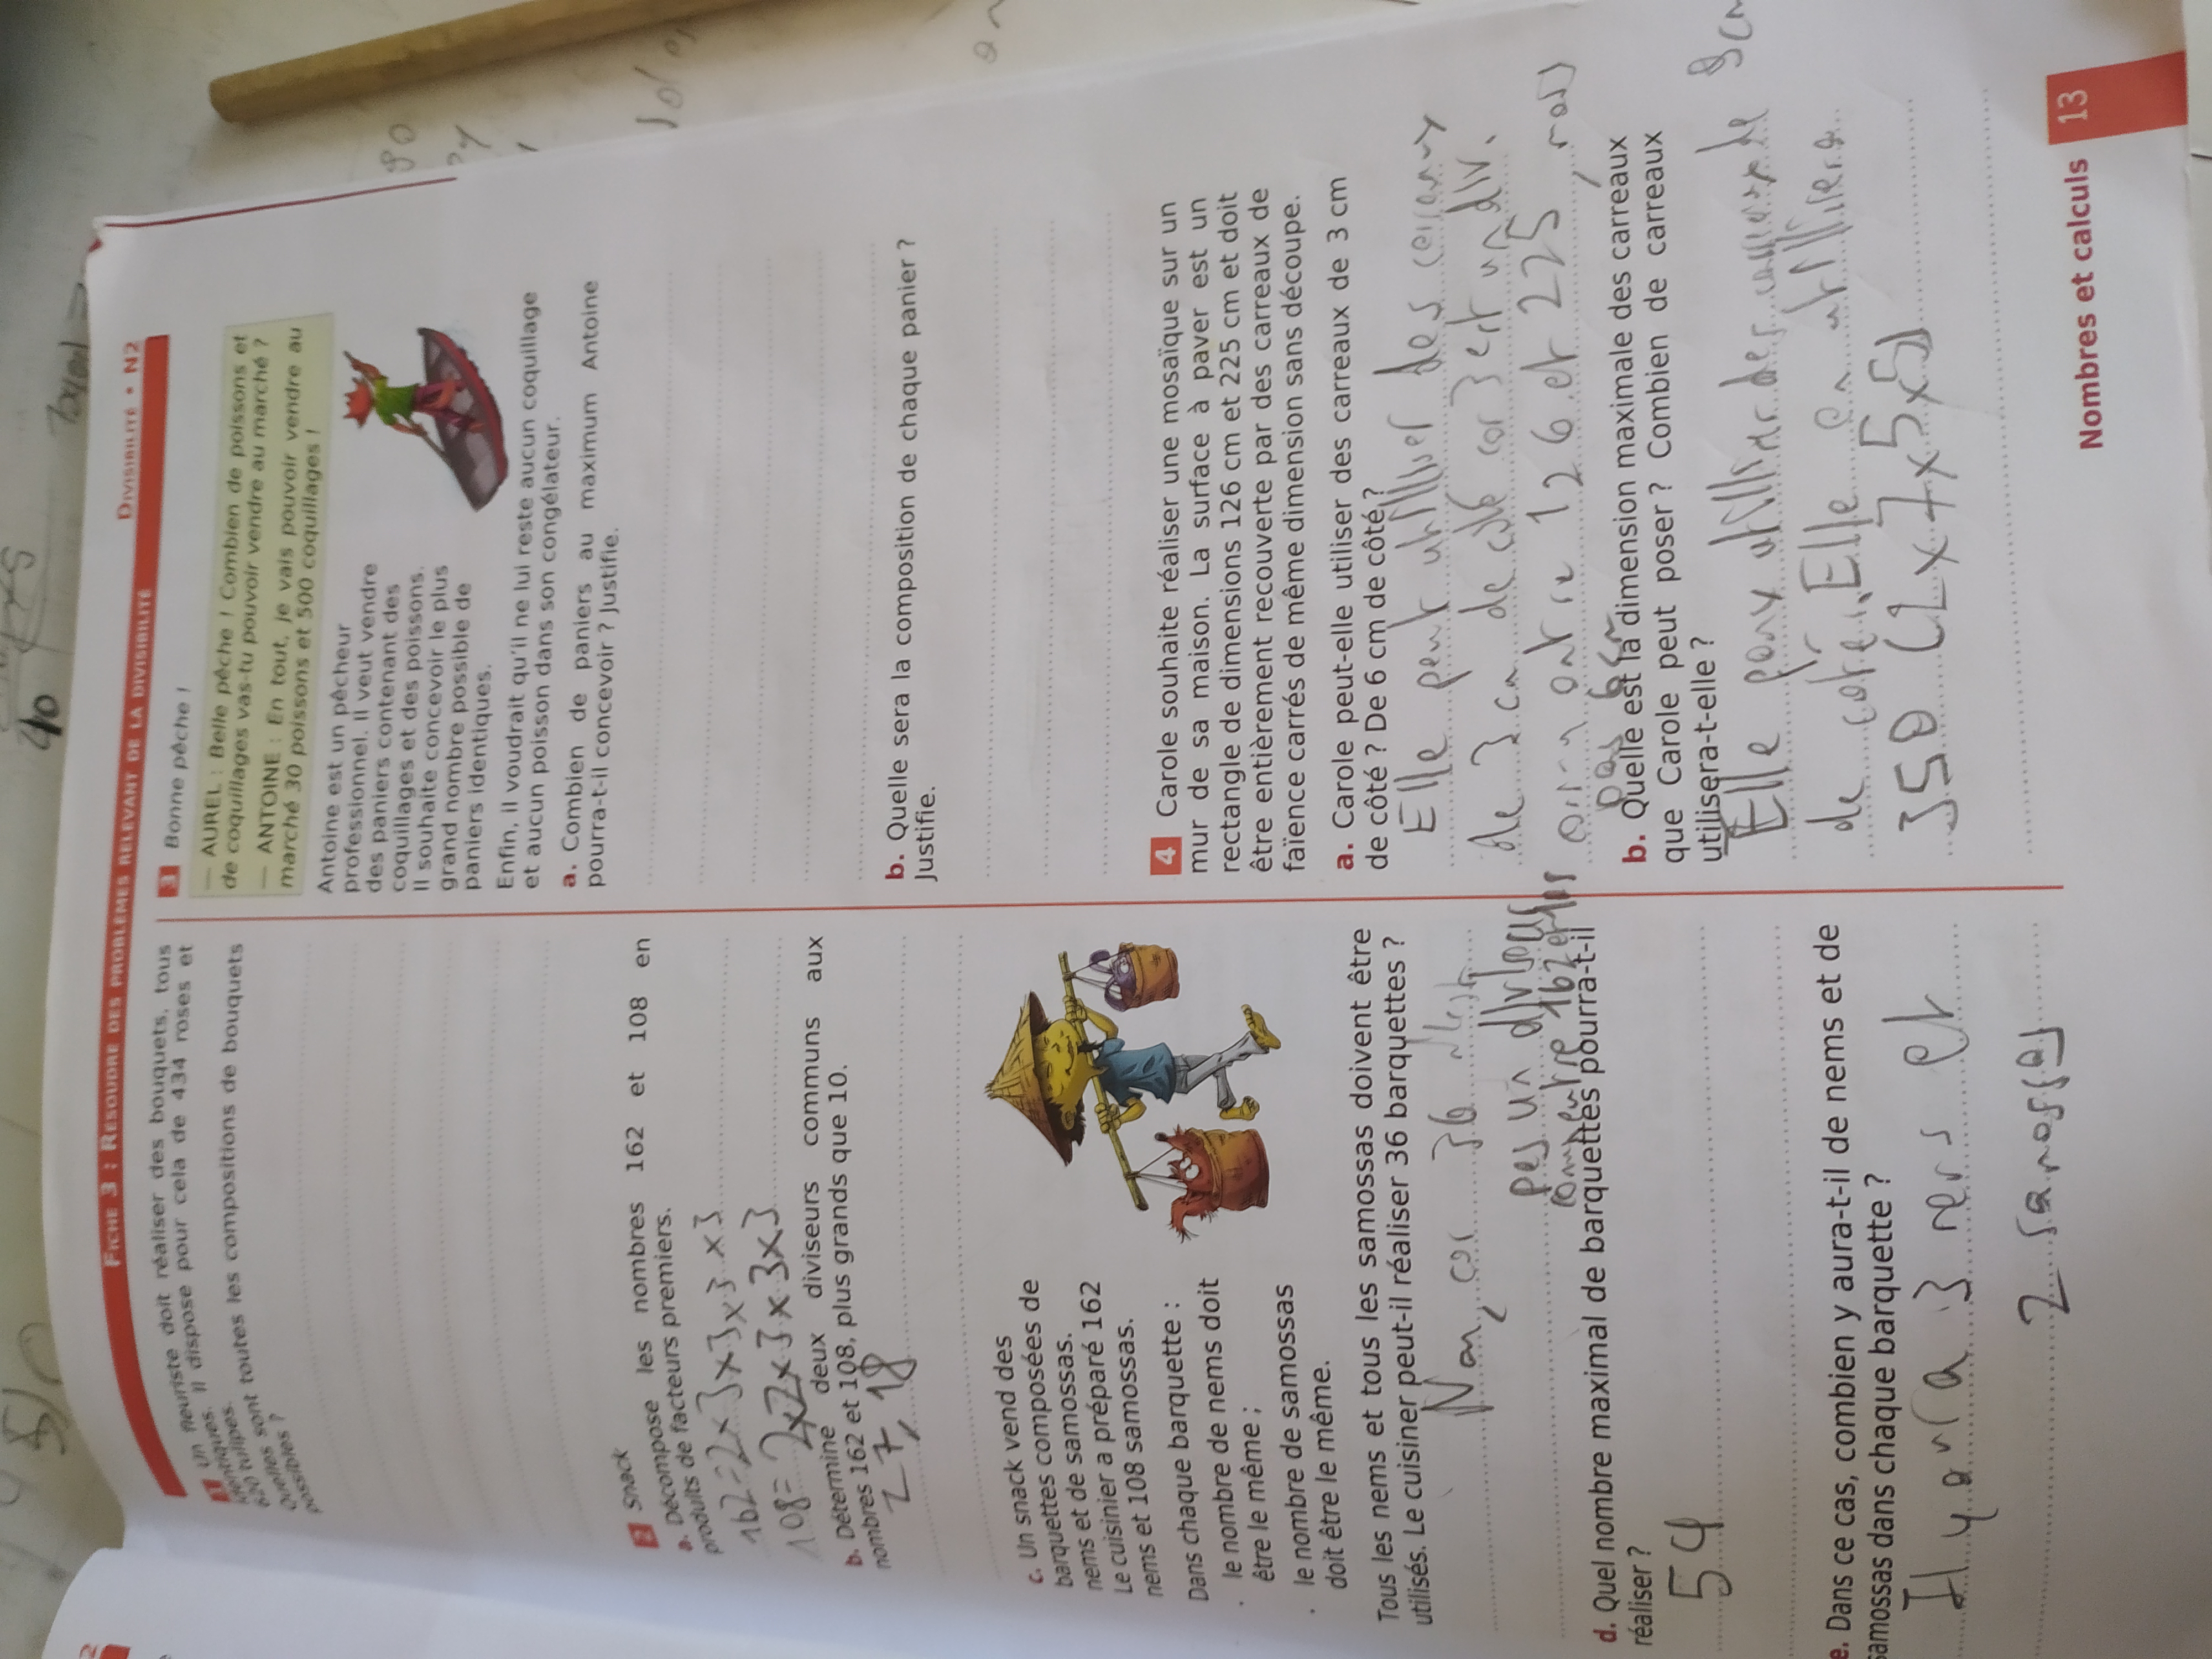 40
FICHE 3 : RÉSOUDRE DES PROBLÈMES RELEVANT DE LA DIVISIBILITÉ
DIVISIBILITÉ • N2
1 Un fleuriste doit réaliser des bouquets, tous
identiques. Il dispose pour cela de 434 roses et
620 tulipes.
Quelles sont toutes les compositions de bouquets
possibles ?
2 Snack
a. Décompose les nombres 162 et 108 en
produits de facteurs premiers.
162=2×3×3×3×3
108= 2×2×3×3×3
b. Détermine deux diviseurs communs aux
nombres 162 et 108, plus grands que 10.
27, 18
c. Un snack vend des
barquettes composées de
nems et de samossas.
Le cuisinier a préparé 162
nems et 108 samossas.
Dans chaque barquette :
. le nombre de nems doit
être le même ;
. le nombre de samossas
doit être le même.
Tous les nems et tous les samossas doivent être
utilisés. Le cuisiner peut-il réaliser 36 barquettes ?
Non, car 36 n'est
pas un
162 et
d. Quel nombre maximal de barquettes pourra-t-il
réaliser ?
54
e. Dans ce cas, combien y aura-t-il de nems et de
samossas dans chaque barquette ?
Il y aura 3 nems et
2 samossas
3 Bonne pêche !
— AUREL : Belle pêche ! Combien de poissons et
de coquillages vas-tu pouvoir vendre au marché ?
— ANTOINE : En tout, je vais pouvoir vendre au
marché 30 poissons et 500 coquillages !
Antoine est un pêcheur
professionnel. Il veut vendre
des paniers contenant des
coquillages et des poissons.
Il souhaite concevoir le plus
grand nombre possible de
paniers identiques.
Enfin, il voudrait qu'il ne lui reste aucun coquillage
et aucun poisson dans son congélateur.
a. Combien de paniers au maximum Antoine
pourra-t-il concevoir ? Justifie.
b. Quelle sera la composition de chaque panier ?
Justifie.
4 Carole souhaite réaliser une mosaïque sur un
mur de sa maison. La surface à paver est un
rectangle de dimensions 126 cm et 225 cm et doit
être entièrement recouverte par des carreaux de
faïence carrés de même dimension sans découpe.
a. Carole peut-elle utiliser des carreaux de 3 cm
de côté ? De 6 cm de côté ?
Elle peut utilliser des carreaux
de 3 cm de côté car 3 est un div.
126 et 225, mais
pas 6 cm
b. Quelle est la dimension maximale des carreaux
que Carole peut poser ? Combien de carreaux
utilisera-t-elle ?
Elle utilliser des carreaux de 9 cm
de coté. Elle en utillisera
350 (2×7×5×5)
Nombres et calculs 13
80